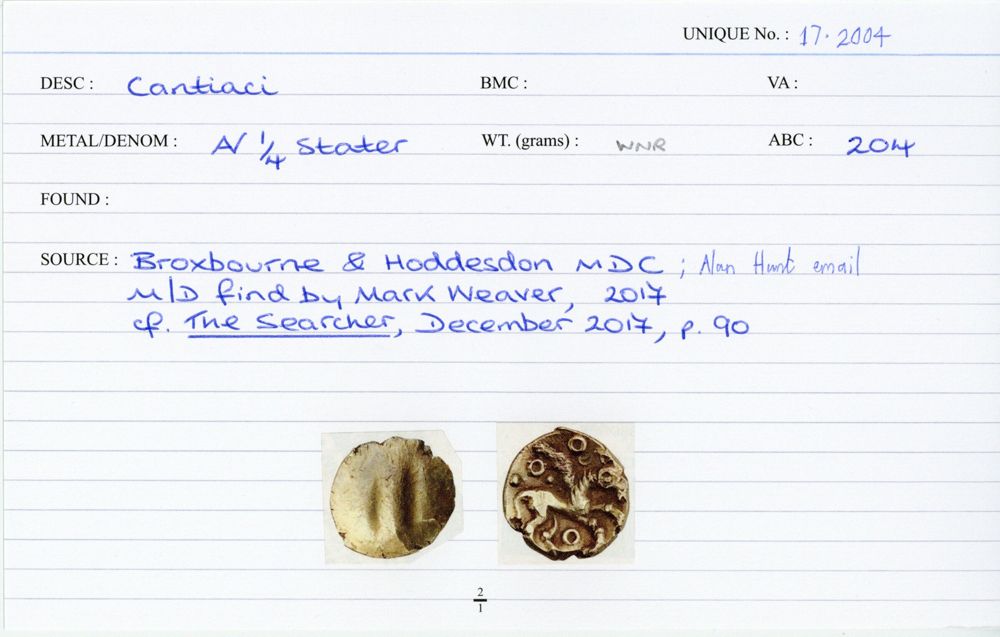 UNIQUE No. : 17.2004
DESC : Cantiaci BMC : VA :
METAL/DENOM : AV 1/4 Stater WT. (grams) : WNR ABC : 204
FOUND :
SOURCE : Broxbourne & Hoddesdon MDC ; Alan Hunt email
M/D find by Mark Weaver, 2017
cf. The Searcher, December 2017, p. 90
2
1